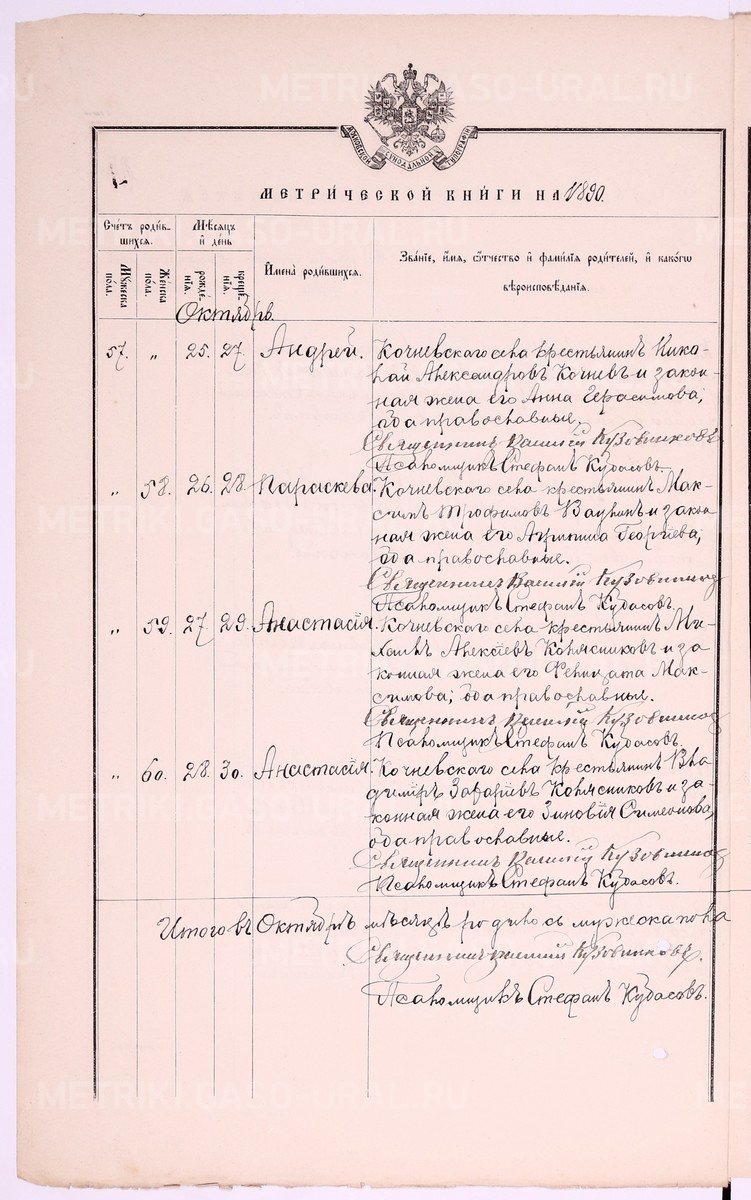 METRIKI.GASO-URAL.RU
МОСКОВСКОЙ СѴНОДАЛЬНОЙ ТИПОГРАФІИ
МЕТРИ́ЧЕСКОЙ КНИ́ГИ НА 1890.
Сче́тъ роди́в-
шихся.
Мѣ́сяцъ
и҆ де́нь
И҆мена̀ роди́вшихся.
Зва́нїе, и҆́мя, ѻ҆́тчество и҆ фами́лїя роди́телей, и҆ како́гѡ
вѣроисповѣ́данїя.
Мꙋ́жеска по́ла.
Же́нска по́ла.
рожде́нїя.
креще́нїя.
Октябрь.
57. „ 25. 27. Андрей. Кочневскаго села крестьянинъ Нико-
лай Александровъ Кочневъ и закон-
ная жена его Анна Герасимова,
оба православные,
Священникъ Василій Кузовниковъ
Псаломщикъ Стефанъ Кудасовъ.
„ 58. 26. 28. Параскева. Кочневскаго села крестьянинъ Мак-
симъ Трофимовъ и закон-
ная жена его Георгіева,
оба православные.
Священникъ Василій Кузовников
Псаломщикъ Стефанъ Кудасовъ.
„ 59. 27. 29. Анастасія. Кочневскаго села крестьянинъ Ми-
хаилъ Алексіевъ Колясниковъ и за-
конная жена его Филицата Мак-
симова; оба православные.
Священникъ Василій Кузовников
Псаломщикъ Стефанъ Кудасовъ.
„ 60. 28. 30. Анастасія. Кочневскаго села крестьянинъ Вла-
диміръ Захаріевъ Колясниковъ и за-
конная жена его Зиновія Симеонова,
оба православные.
Священникъ Василій Кузовников
Псаломщикъ Стефанъ Кудасовъ.
Итого въ Октябрѣ мѣсяцѣ родилось мужеска пола
Священникъ Василій Кузовниковъ.
Псаломщикъ Стефанъ Кудасовъ.
METRIKI.GASO-URAL.RU